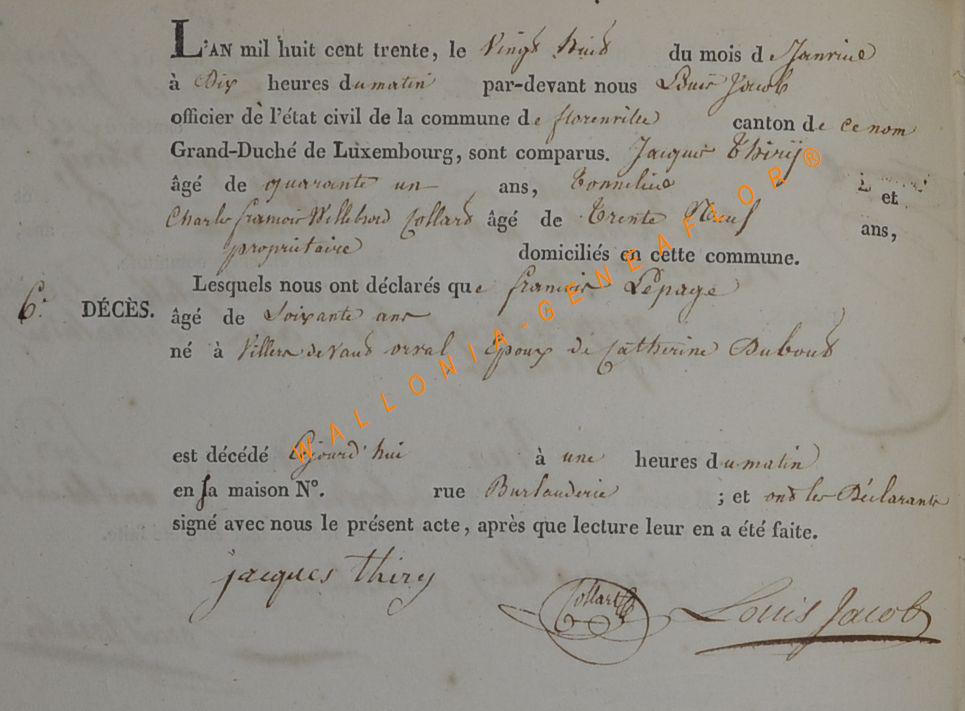 L'AN mil huit cent trente, le Vingt huit du mois de Janvier
à Dix heures du matin par-devant nous Louis Jacob
officier de l'état civil de la commune de florenville canton de ce nom
Grand-Duché de Luxembourg, sont comparus. Jacques Thiry
âgé de quarante un ans, Tonnelier et
Charles françois Willebrord Collard âgé de Trente Neuf ans,
propriétaire domiciliés en cette commune.
Lesquels nous ont déclarés que françois Lepage
6. DÉCÈS. âgé de Soixante ans
né à Villers devant orval Epoux de Catherine Dubout
est décédé aujourd'hui à une heures du matin
en sa maison N°. rue Burlauderie ; et ont les Déclarants
signé avec nous le présent acte, après que lecture leur en a été faite.
jacques thiry
Collard Louis Jacob
WALLONIA-GENEAFLOB®